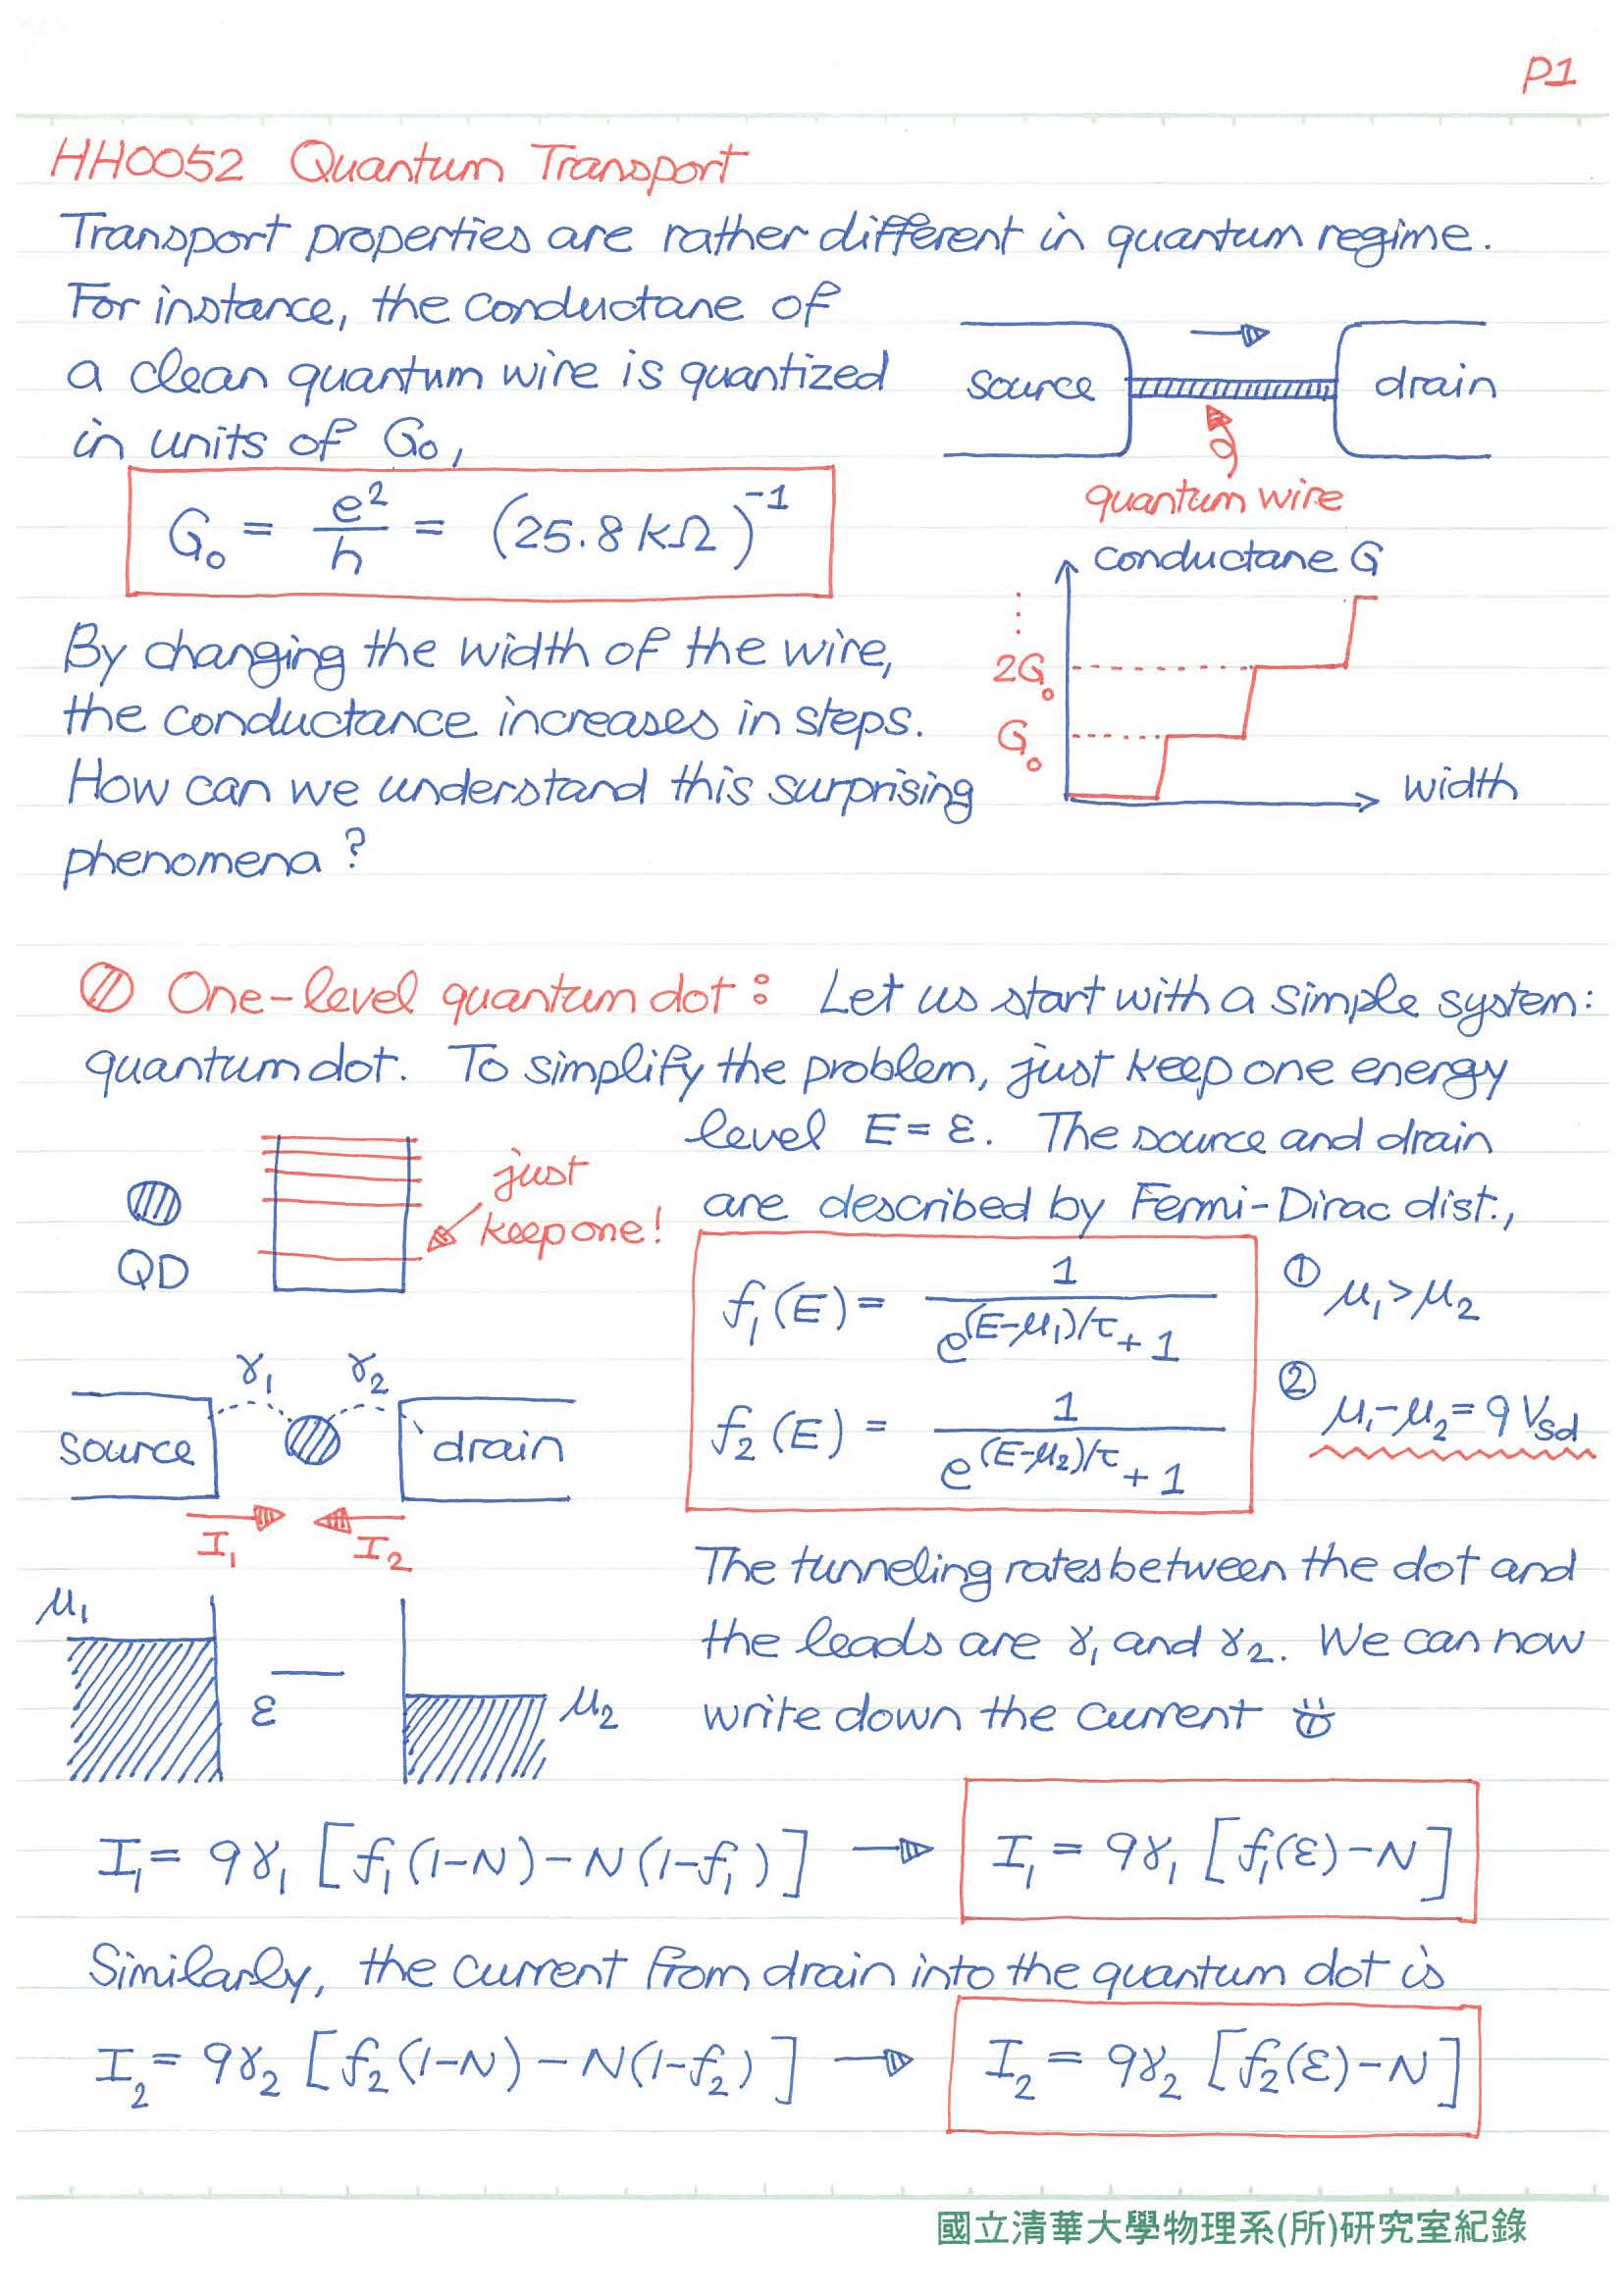 P1
HH0052 Quantum Transport
Transport properties are rather different in quantum regime.
For instance, the conductane of
a clean quantum wire is quantized
in units of G₀,
source
drain
quantum wire
G₀ = e²/h = (25.8 kΩ)⁻¹
conductane G
2G₀
G₀
width
By changing the width of the wire,
the conductance increases in steps.
How can we understand this surprising
phenomena?
One-level quantum dot: Let us start with a simple system:
quantum dot. To simplify the problem, just keep one energy
level E = ε. The source and drain
are described by Fermi-Dirac dist.,
just
keep one!
QD
f₁(E) = 1/(e^{(E-μ₁)/τ} + 1)
① μ₁ > μ₂
f₂(E) = 1/(e^{(E-μ₂)/τ} + 1)
② μ₁ - μ₂ = qV_sd
γ₁ γ₂
source
drain
I₁ I₂
The tunneling rates between the dot and
the leads are γ₁ and γ₂. We can now
write down the current
μ₁
ε
μ₂
I₁ = qγ₁ [f₁(1-N) - N(1-f₁)] → I₁ = qγ₁ [f₁(ε) - N]
Similarly, the current from drain into the quantum dot is
I₂ = qγ₂ [f₂(1-N) - N(1-f₂)] → I₂ = qγ₂ [f₂(ε) - N]
國立清華大學物理系(所)研究室紀錄